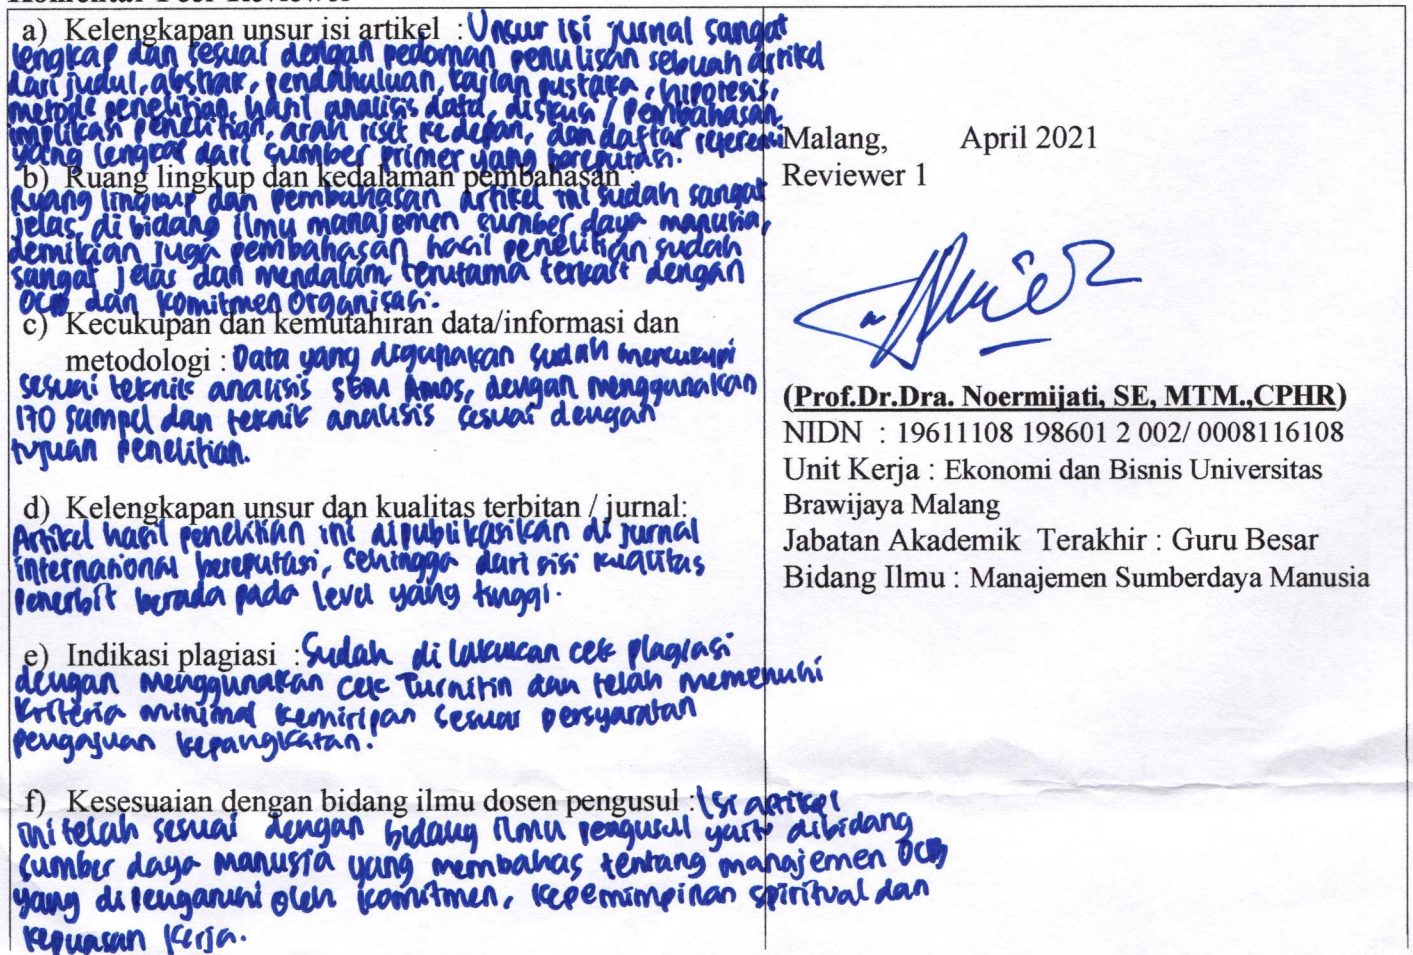 Komentar Peer Reviewer
a) Kelengkapan unsur isi artikel : Unsur isi jurnal sangat
lengkap dan sesuai dengan pedoman penulisan sebuah artikel
dari judul, abstrak, pendahuluan, kajian pustaka, hipotesis,
metode penelitian, hasil analisis data, diskusi / pembahasan,
implikasi penelitian, arah riset kedepan, dan daftar referensi
yang lengkap dari sumber primer yang bereputasi.
b) Ruang lingkup dan kedalaman pembahasan :
Ruang lingkup dan pembahasan artikel ini sudah sangat
jelas, di bidang ilmu manajemen sumber daya manusia,
demikian juga pembahasan hasil penelitian sudah
sangat jelas dan mendalam, terutama terkait dengan
OCB dan komitmen organisasi.
c) Kecukupan dan kemutahiran data/informasi dan
metodologi : Data yang digunakan sudah mencukupi
sesuai teknik analisis SEM Amos, dengan menggunakan
170 sampel dan teknik analisis sesuai dengan
tujuan penelitian.
d) Kelengkapan unsur dan kualitas terbitan / jurnal:
Artikel hasil penelitian ini dipublikasikan di jurnal
internasional bereputasi, sehingga dari sisi kualitas
penerbit berada pada level yang tinggi.
e) Indikasi plagiasi : Sudah di lakukan cek plagiasi
dengan menggunakan cek Turnitin dan telah memenuhi
kriteria minimal kemiripan sesuai persyaratan
pengajuan kepangkatan.
f) Kesesuaian dengan bidang ilmu dosen pengusul : Isi artikel
ini telah sesuai dengan bidang ilmu pengusul yaitu dibidang
sumber daya manusia yang membahas tentang manajemen OCB
yang di pengaruhi oleh komitmen, kepemimpinan spiritual dan
kepuasan kerja.
Malang, April 2021
Reviewer 1
(Prof.Dr.Dra. Noermijati, SE, MTM.,CPHR)
NIDN : 19611108 198601 2 002/ 0008116108
Unit Kerja : Ekonomi dan Bisnis Universitas
Brawijaya Malang
Jabatan Akademik Terakhir : Guru Besar
Bidang Ilmu : Manajemen Sumberdaya Manusia